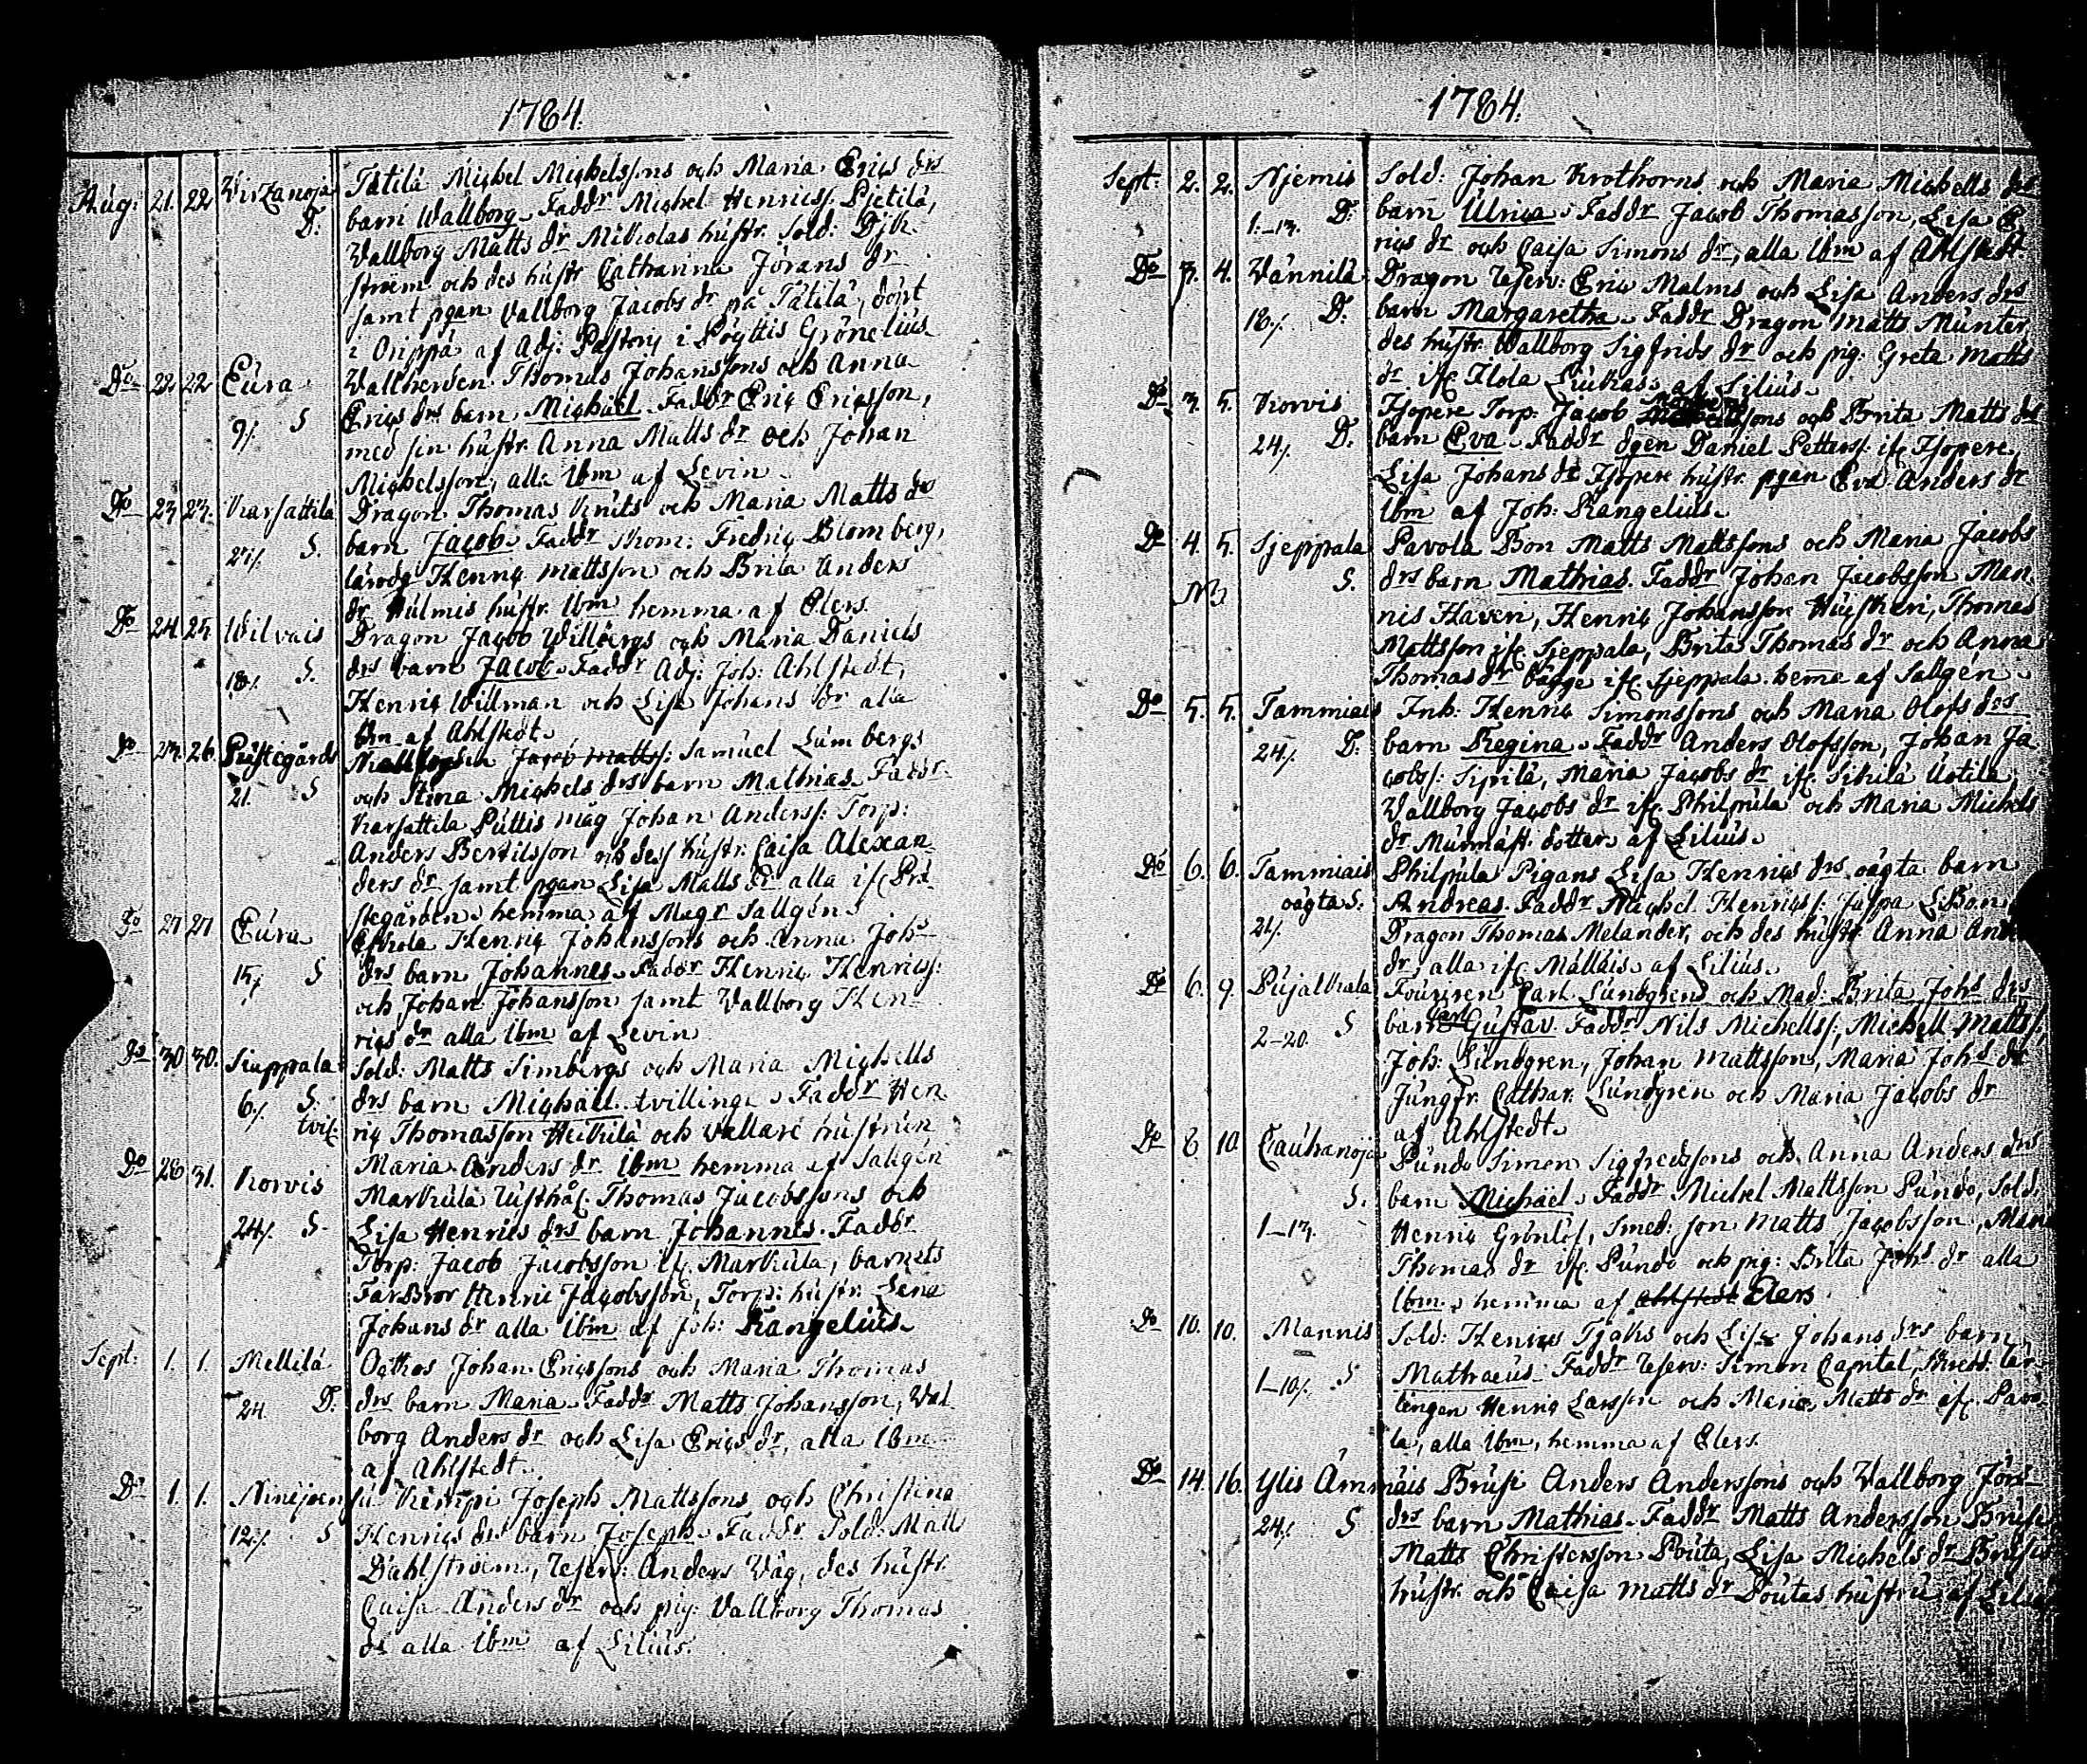 1784.
Aug: 21. 22 Virzanoja Tätilä Michel Michelssons och Maria Erics drs
D. barn Wallborg. Faddr Michel Henricss. Pietilä,
Wallborg Matts dr Mikolas hustr. Sold: Djk-
ström och des hustr Catharina Jörans dr
samt pgan Vallborg Jacobs dr på Tätilä, döpt
i Orippä af Adj: Pastoris i Pöyttis Grönelius
Do 22 22 Eura Wallherden Thomas Johanssons och Anna
9/. S Erics drs barn Michaël. Faddr Eric Ericsson,
med sin hustr. Anna Matts dr och Johan
Michelsson, alla Ibm af Levin
Do 23 23. Karsattila Dragon Thomas Knuts och Maria Matts drs
27/. S. barn Jacob. Faddr Skom: Fredric Blomberg,
Henric Mattsson och Brita Anders
dr Hulmis hustr. Ibm hemma af Elers.
Do 24. 25 Wilvais Dragon Jacob Willbergs och Maria Daniels
18/. S. drs barn Jacob. Faddr Adj: Joh: Ahlstedt,
Henric Willman och Lisa Johans dr alla
Ibm af Ahlstedt.
Do 23. 26. Prästegårds Jacob Matts: Samuel Lumbergs
21. S och Stina Michels drs barn Mathias. Faddr
Karsattila Puttis måg Johan Anderss: Torp:
Anders Bertilsson och dess hustr. Caisa Alexan-
ders dr samt pgan Lisa Matts dr alla ifr. Prä-
stegården. hemma af Magr Sallgén.
Do 27 27 Eura Henric Johanssons och Anna Johs
15/. S drs barn Johannes. Faddr Henric Henricss:
och Johan Johansson samt Wallborg Hen-
rics dr alla Ibm af Levin
Do 30 30. Siuppala Sold: Matts Simbergs och Maria Michells
6/. S. drs barn Michaël. tvilling. Faddr Hen-
tvil: ric Thomasson Heikilä och vallare hustrun
Maria Anders dr Ibm hemma af Sallgén
Do 28 31. Korvis Markula Thomas Jacobssons och
24/. S. Lisa Henrics drs barn Johannes. Faddr
Torp: Jacob Jacobsson ifr. Markula, barnets
FarBror Henric Jacobsson, Torp: hustr. Lena
Johans dr alla Ibm af Joh: Rangelius.
Sept: 1. 1. Mellilä Johan Ericssons och Maria Thomas
24. D. drs barn Maria. Faddr Matts Johansson, Wal-
borg Anders dr och Lisa Erics dr, alla Ibm
af Ahlstedt.
Do 1. 1. Ninijoensu Kemppi Joseph Mattssons och Christina
12/. S Henrics drs barn Joseph. Faddr Sold: Matts
Dahlström, Reserv: Anders Våg, des hustr.
Caisa Anders dr och pig: Vallborg Thomas
dr alla Ibm af Lilius.
1784.
Sept: 2. 2. Njemis Sold: Johan Krothorns och Maria Michells drs
1.-13. D: barn Ulrica. Faddr Jacob Thomasson, Lisa E-
rics dr och Caisa Simons dr, alla Ibm af Ahlstedt.
Do 3. 4. Vännilä Dragon Reserv: Eric Malms och Lisa Anders drs
18/. D: barn Margaretha. Faddr Dragon Matts Munter
des hustr. Wallborg Sigfrids dr och pig: Greta Matts
dr ifr. Ilola Liukas. af Lilius.
Do 3. 5. Korvis Isopere Torp: Jacob sons och Brita Matts drs
24/. D. barn Eva. Faddr dgen Daniel Petterss: ifr Isopere,
Lisa Johans dr Isopere hustr. pgan Eva Anders dr
Ibm af Joh: Rangelius.
Do 4. 5. Sjeppala Pavola Bon Matts Mattssons och Maria Jacobs
S. drs barn Mathias. Faddr Johan Jacobsson Man-
nis Haven, Henric Johansson Thomas
Mattsson ifr. Sjeppala, Brita Thomas dr och Anna
Thomas dr bägge ifr. Sjeppala. heme af Sallgén.
Do 5. 5. Tammiais Inh: Henric Simonssons och Maria Olofs drs
24/. D: barn Regina. Faddr Anders Olofsson, Johan Ja-
cobss: Sipilä, Maria Jacobs dr ifr. Sikilä Uotila,
Wallborg Jacobs dr ifr. Philpula och Maria Michels
dr Murmast. dotter. af Lilius.
Do 6. 6. Tammiais Philpula Pigans Lisa Henrics drs oägta barn
oägta S: Andreas. Faddr Michel Henricss: Juspa
21/. Dragon Thomas Melander, och des hustr. Anna
dr, alla ifr. Mällais. af Lilius.
Do 6. 9. Pujalkala Fouriren Carl Lundgrens och Mad: Brita Johs drs
2-20. S barn Carl Gustav. Faddr Nils Michells:, Michell Matts:,
Joh: Lundgren, Johan Mattsson, Maria Johs dr
Jungfr. Cathar. Lundgren och Maria Jacobs dr
af Ahlstedt.
Do 8 10 Cauhanoja Pundo Simon Sigfredssons och Anna Anders drs
S. barn Michäel. Faddr Michel Mattsson Pundo, Sold.
1-13. Henric Grönlöf, Smed: son Matts Jacobsson, Mari
Thomas dr ifr. Pundo och pig: Brita Johs dr alla
Ibm. hemma af Ahlstedt Elers.
Do 10. 10. Mannis Sold: Henrics Tjäkis och Lisa Johans drs barn
1-10/. S Mathraeus. Faddr Reserv: Simon Capital, Skredd: lär-
lingen Henric Larsson och Maria Matts dr ifr. Pavo-
la, alla Ibm, hemma af Elers.
Do 14. 16. Ylis Ämmäis Brusi Anders Anderssons och Wallborg Jörs
24/. S drs barn Mathias. Faddr Matts Andersson Brusi,
Matts Christersson Pouta, Lisa Michels dr Brusi
hustr. och Caisa Matts dr Poutas hustru. af Lilius